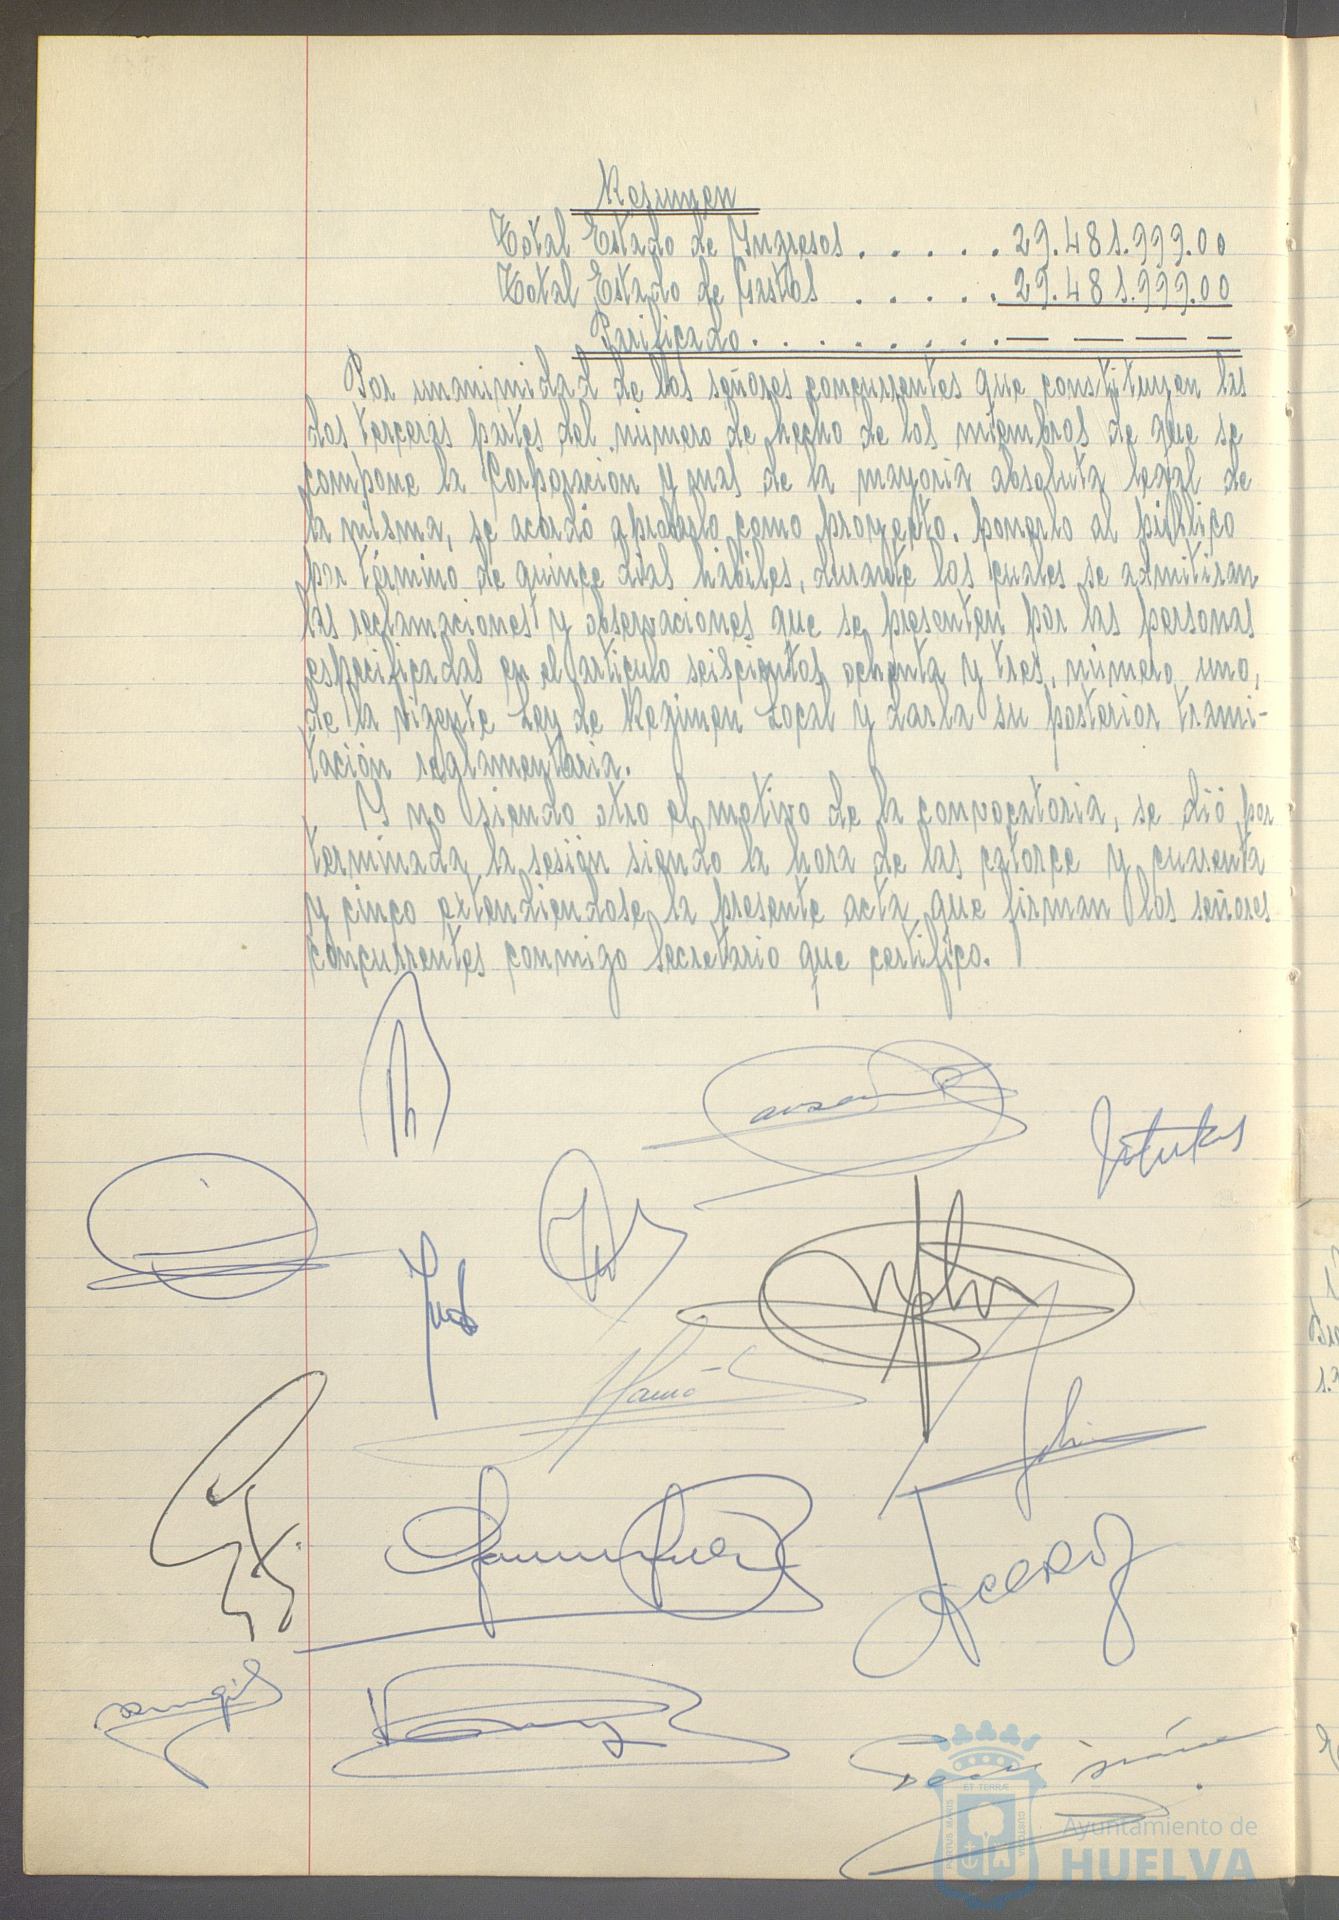 Resumen
Total Estado de Ingresos . . . . . 29.481.999.00
Total Estado de Gastos . . . . . 29.481.999.00
Parificado . . . . . . . . . — — — —
Por unanimidad de los señores concurrentes que constituyen las
dos terceras partes del número de hecho de los miembros de que se
compone la Corporación y mas de la mayoria absoluta legal de
la misma, se acordó aprobarlo como proyecto. ponerlo al público
por término de quince dias hábiles, durante los cuales se admitiran
las reclamaciones y observaciones que se presenten por las personas
especificadas en el articulo seiscientos ochenta y tres, número uno,
de la vigente Ley de Regimen Local y darla su posterior trami-
tación reglamentaria.
Y no siendo otro el motivo de la convocatoria, se dió por
terminada la sesión siendo la hora de las catorce y cuarenta
y cinco extendiendose la presente acta que firman los señores
concurrentes conmigo Secretario que certifico.
PORTUS MARIS ET TERRÆ CUSTODIA
Ayuntamiento de
HUELVA